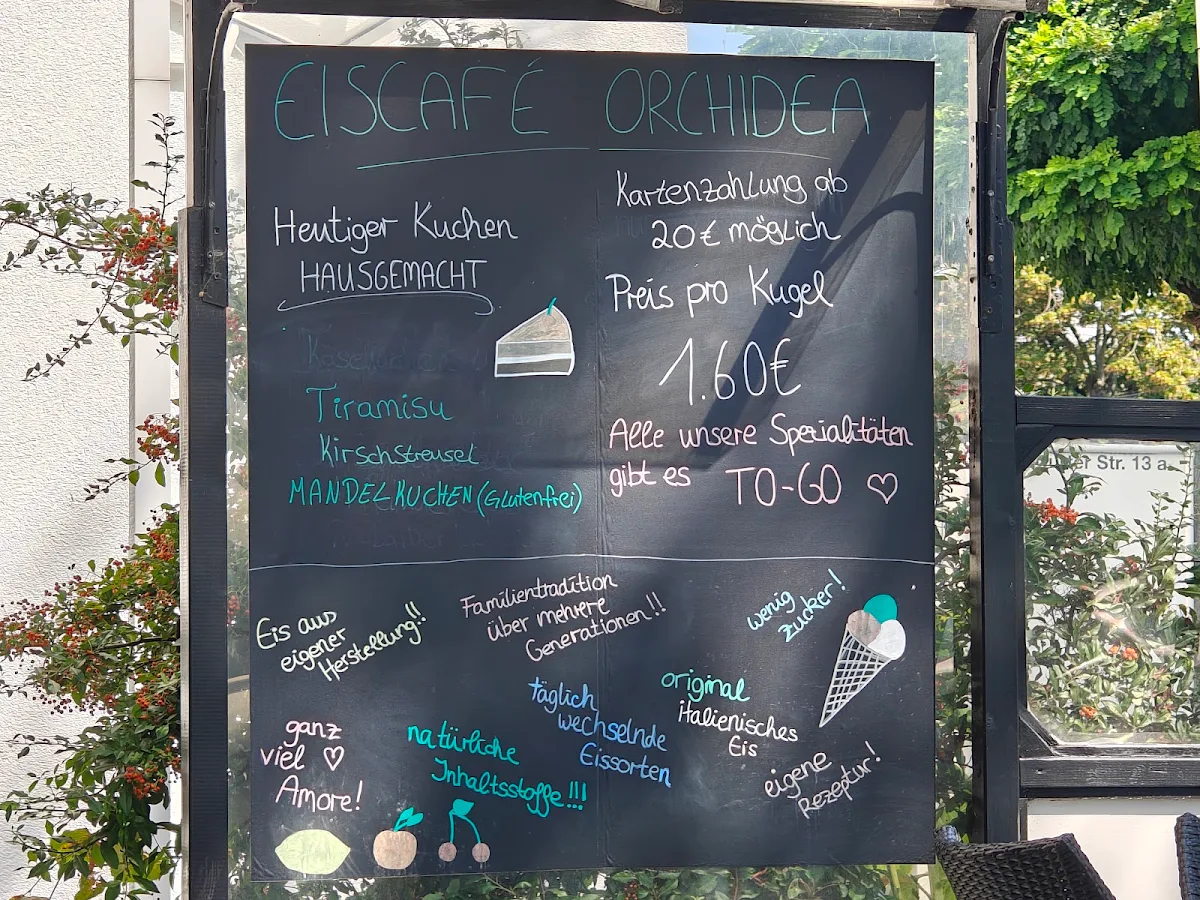 EISCAFÉ ORCHIDEA
Heutiger Kuchen
HAUSGEMACHT
Tiramisu
Kirschstreusel
MANDELKUCHEN (Glutenfrei)
Kartenzahlung ab
20€ möglich
Preis pro Kugel
1.60€
Alle unsere Spezialitäten
gibt es TO-GO
Eis aus
eigener
Herstellung!!
Familientradition
über mehrere
Generationen!!
wenig
zucker!
täglich
wechselnde
Eissorten
original
italienisches
Eis
ganz
viel
Amore!
natürliche
Inhaltsstoffe!!!
eigene
Rezeptur!
er Str. 13 a